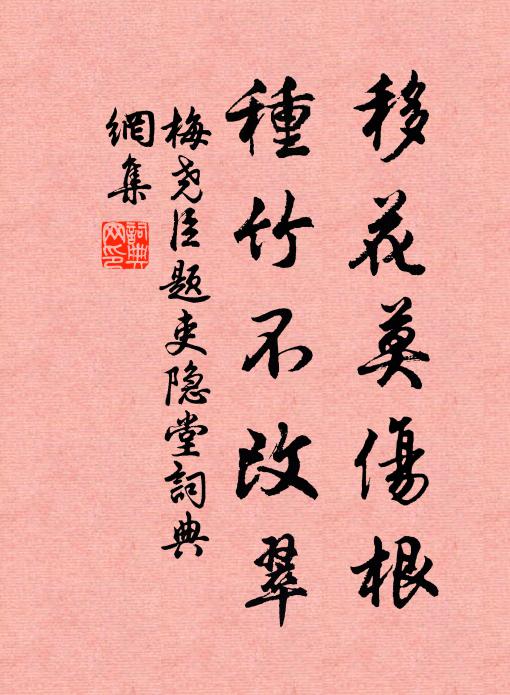 移花莫傷根
種竹不改翠
梅尧臣题吏隐堂詞典
網集
詞典
网印